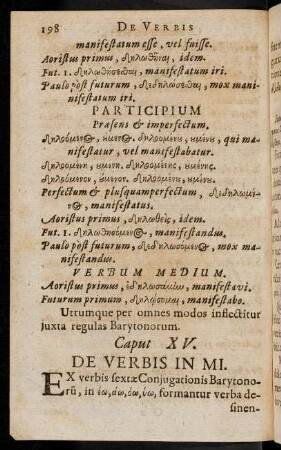 198 DE VERBIS
manifestatum esse, vel fuisse.
Aoristus primus, δηλωθῆναι, idem.
Fut. 1. δηλωθήσεσθαι, manifestatum iri.
Paulo post futurum, δεδηλώσεσθαι, mox mani-
nifestatum iri.
PARTICIPIUM
Præsens & imperfectum.
δηλούμενος, ημενος. δηλουμένη, ημένη, qui ma-
nifestatur, vel manifestabatur.
Perfectum & plusquamperfectum, δεδηλωμέ-
νος, manifestatus.
Aoristus primus, δηλωθεὶς, idem.
Fut. 1. δηλωθησόμενος, manifestandus.
Paulo post futurum, δεδηλωσόμενος, mox ma-
nifestandus.
VERBUM MEDIUM.
Aoristus primus, ἐδηλωσάμην, manifestavi.
Futurum primum, δηλώσομαι, manifestabo.
Utrumque per omnes modos inflectitur
juxta regulas Barytonorum.
Caput XV.
DE VERBIS IN MI.
EX verbis sextæ Conjugationis Barytono-
rū, in έω, άω, όω, ύω, formantur verba de-
sinen-